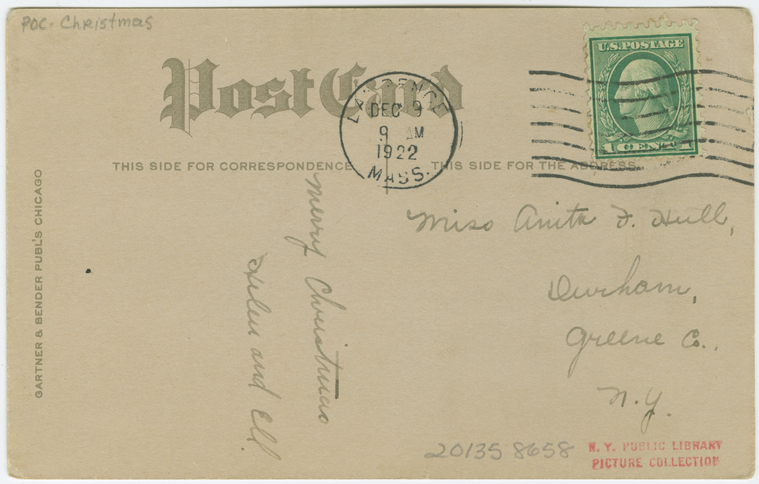 POC- Christmas
Post Card
U.S. POSTAGE
1 CENT 1
LAWRENCE
DEC 9
9 AM
1922
MASS.
THIS SIDE FOR CORRESPONDENCE
THIS SIDE FOR THE ADDRESS
GARTNER & BENDER PUBL'S CHICAGO
Merry Christmas
Helen and Ell.
Miss Anita F. Hull,
Durham,
Greene Co.,
N.Y.
20135 8658
N. Y. PUBLIC LIBRARY
PICTURE COLLECTION